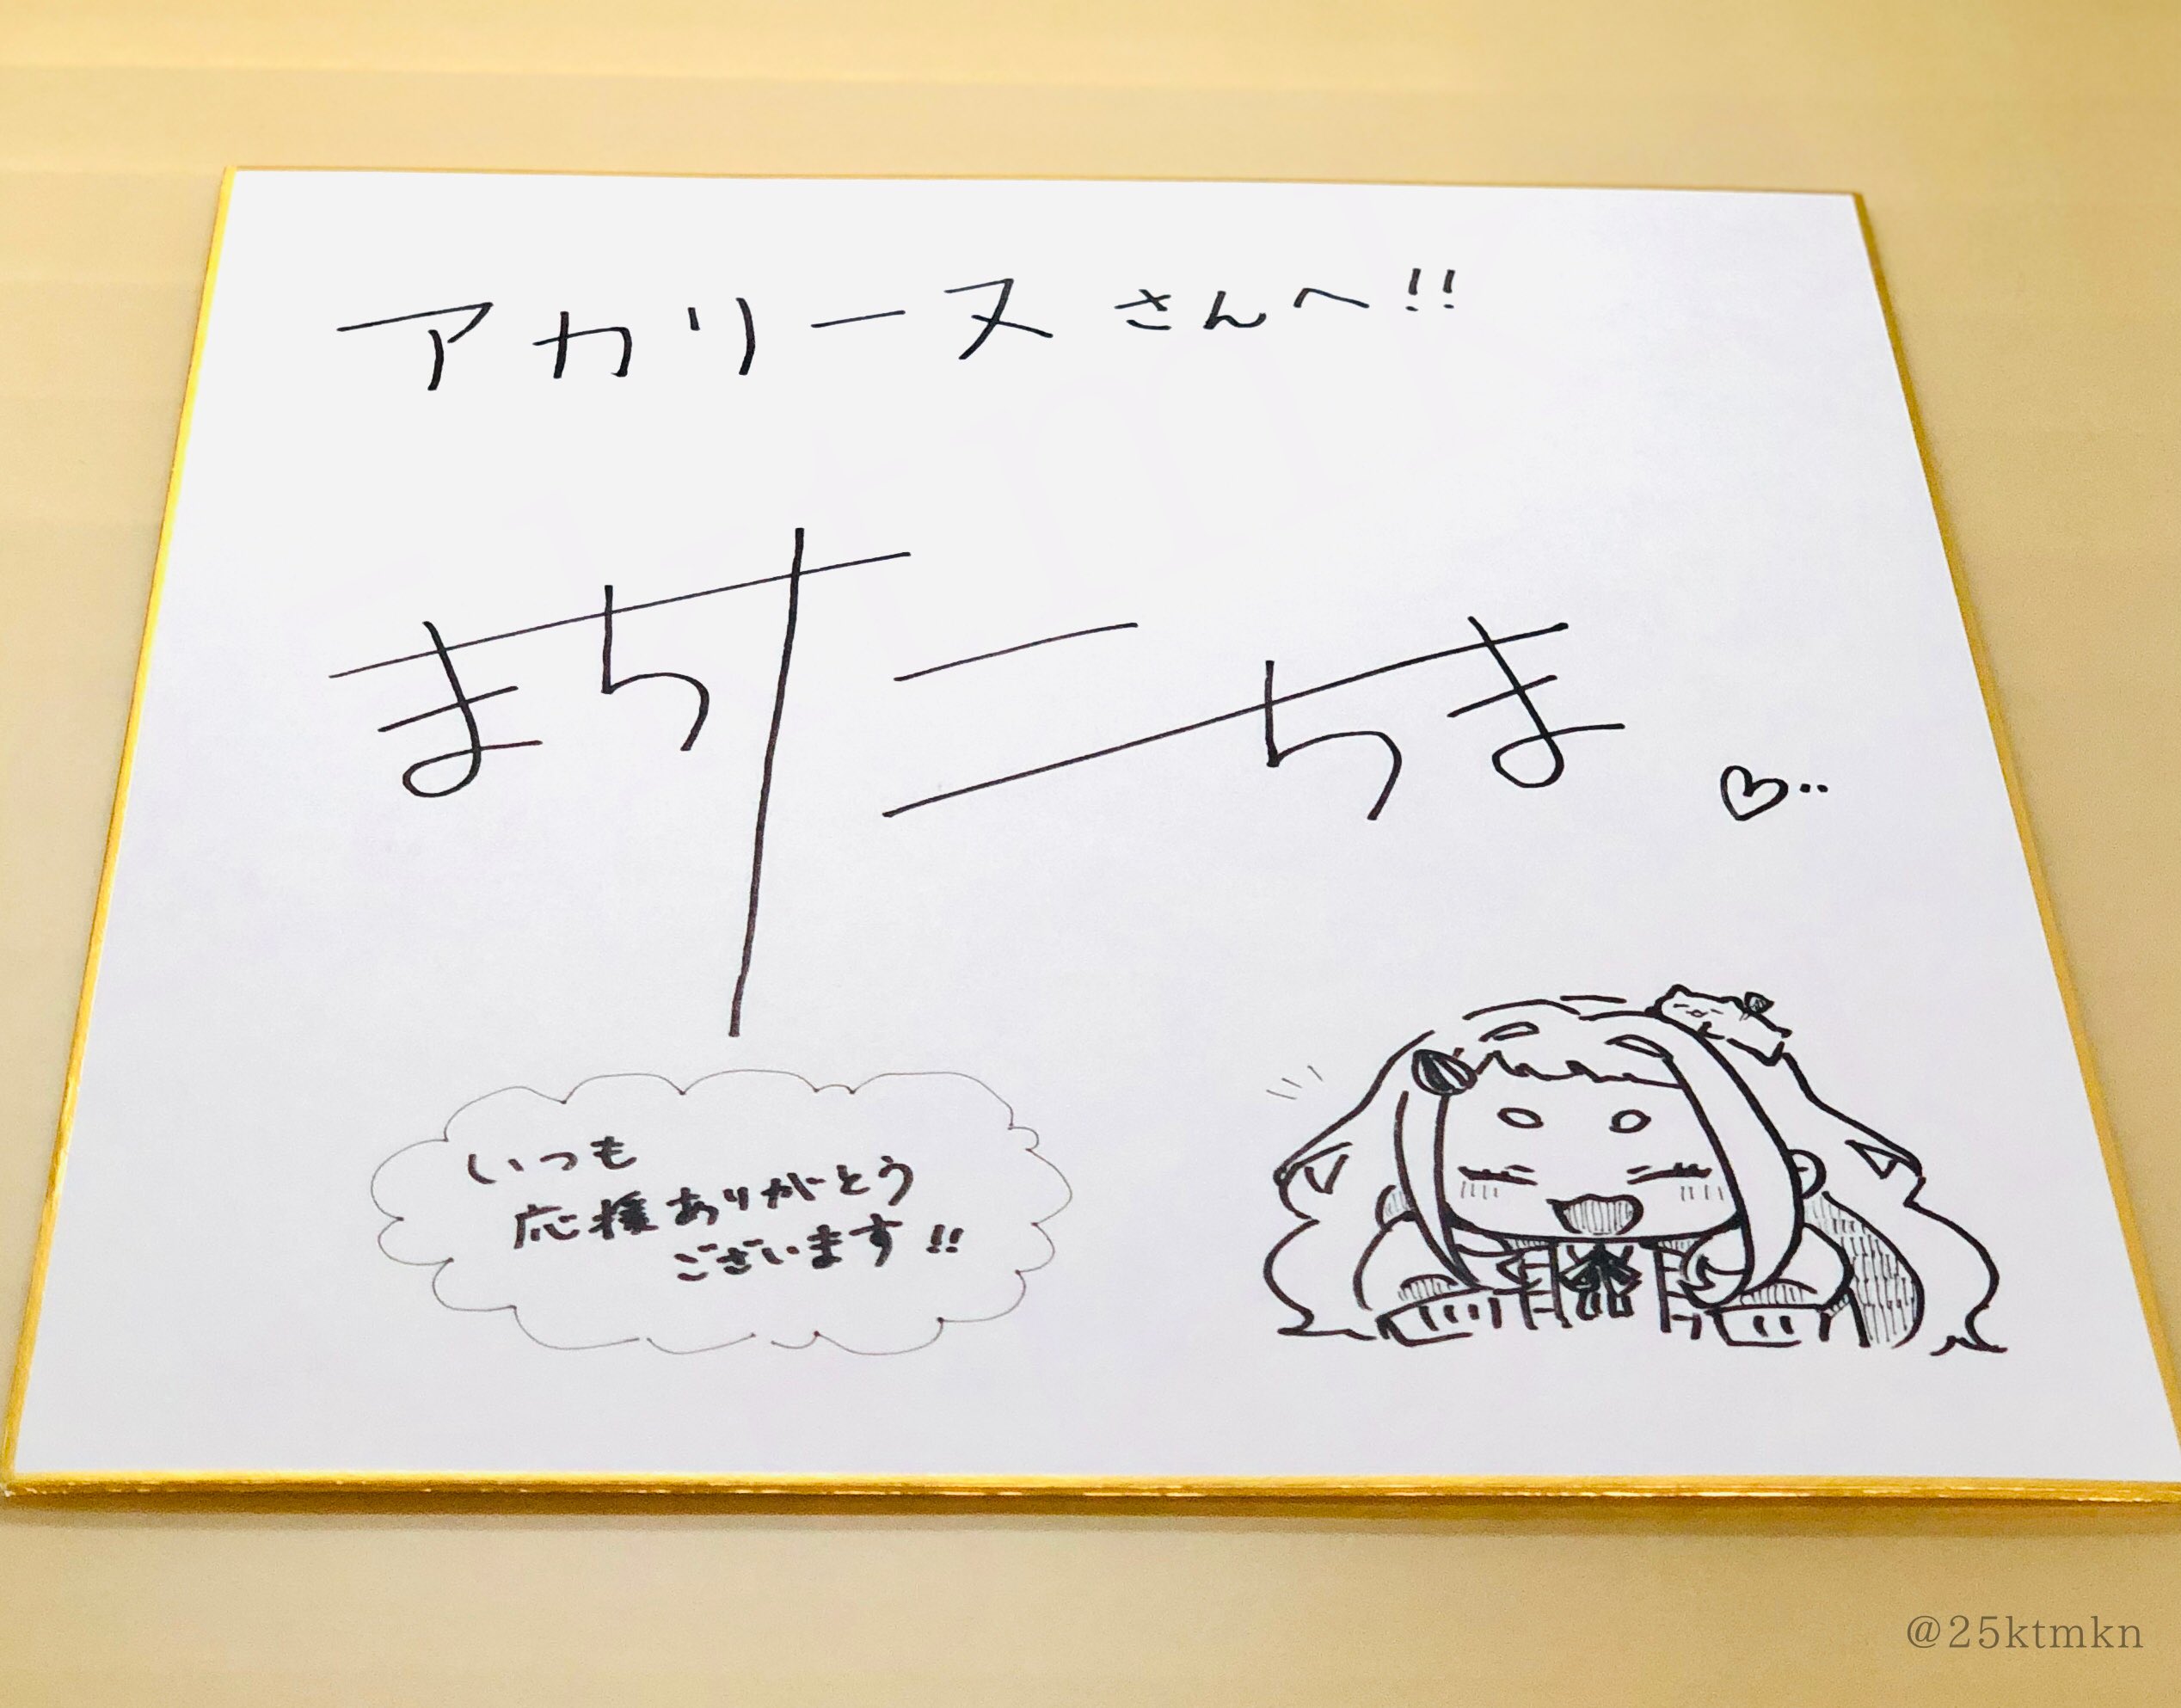 アカリーヌさんへ!!
まちナニちま♡‥
いつも
応援ありがとう
ございます!!
@25ktmkn